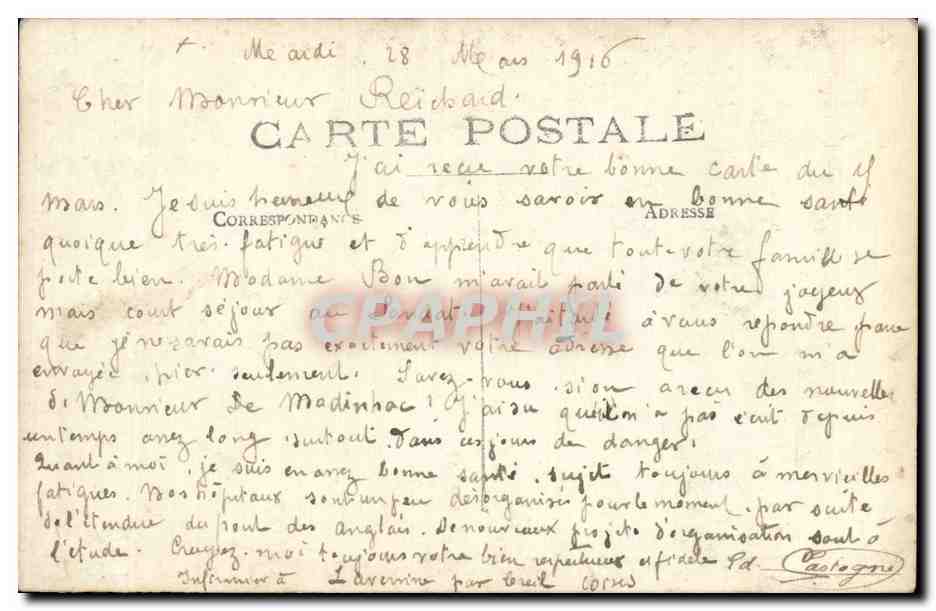 Mardi 28 Mars 1916
Cher Monsieur Reichard.
CARTE POSTALE
J'ai reçu votre bonne carte du
mars. Je suis heureux de vous savoir en bonne santé
CORRESPONDANCE
ADRESSE
quoique très fatigué et d'apprendre que toute votre famille se
porte bien. Madame Bon m'avait parlé de votre joyeux
mais court séjour au
CPAPHIL
à vous repondre parce
que je ne savais pas exactement votre adresse que l'on m'a
envoyée hier seulement. Savez-vous si on a reçu des nouvelles
de Monsieur De Madinhac? J'ai su qu'il n'a pas écrit depuis
un temps assez long surtout dans ces jours de danger.
Quant à moi, je suis en assez bonne santé sujet toujours à
fatigues. Nos hôpitaux sont un peu désorganisés pour le moment par suite
de l'étendue du front des anglais. De nouveaux projets d'organisation sont à
l'étude. Croyez-moi toujours votre bien respectueux et fidèle Ed. Castogne
Infirmier à Laversine par Creil